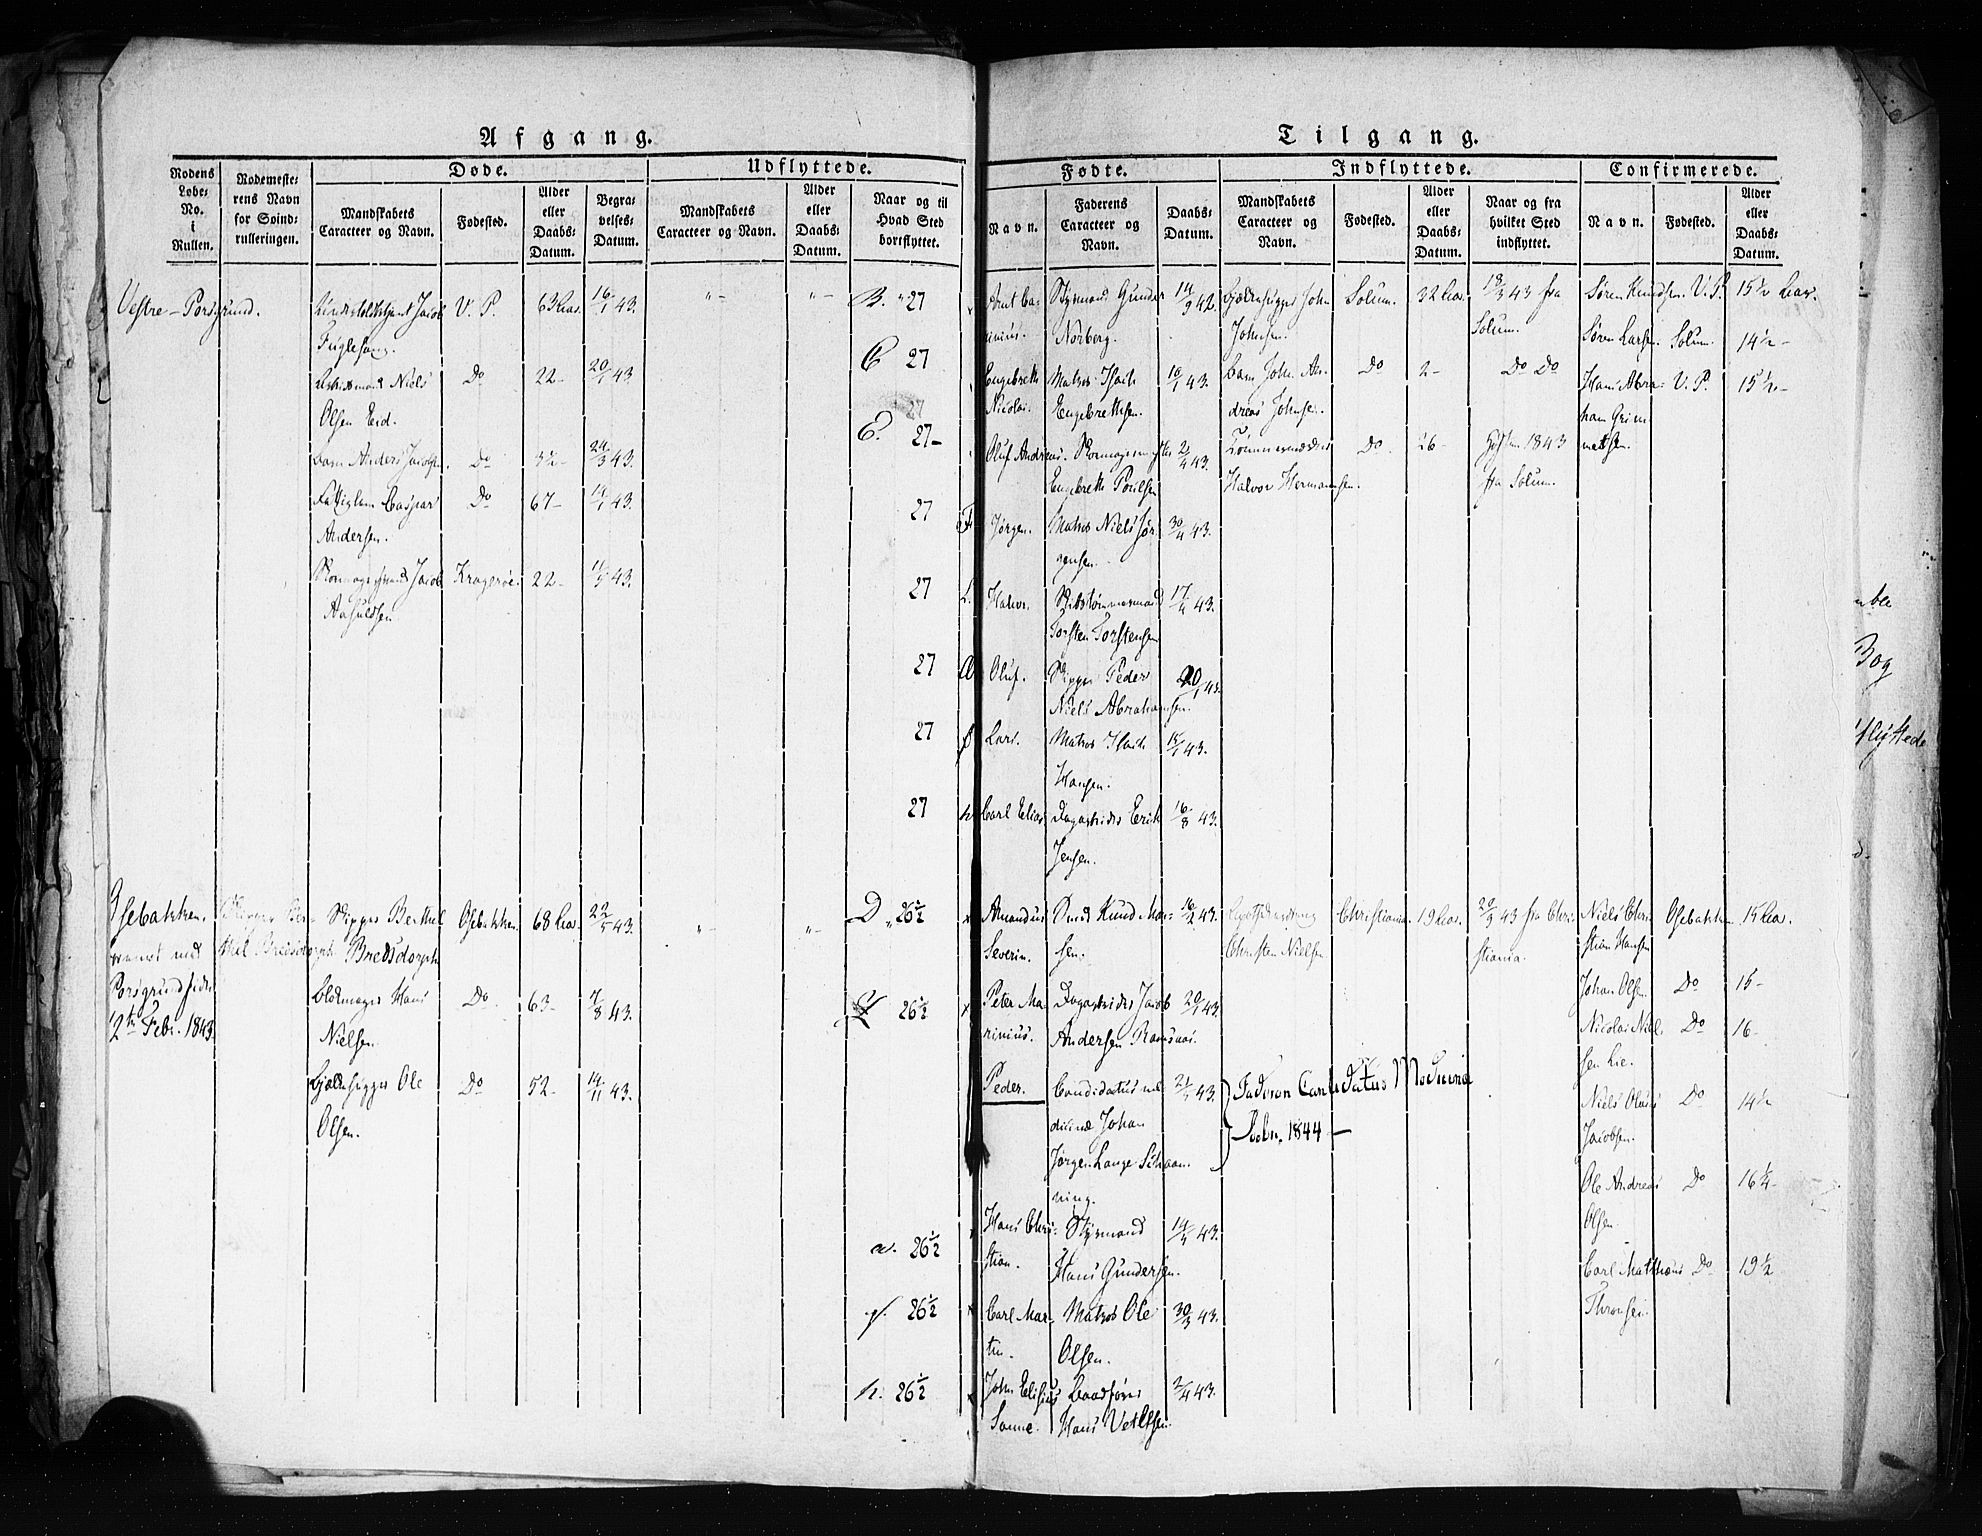 Afgang.
Døde.
Udflyttede.
Rodens Løbe-No. i Rullen.
Rodemeste-rens Navn for Søind-rulleringen.
Mandskabets Caracteer og Navn.
Fødested.
Alder eller Daabs-Datum.
Begra-velses-Datum.
Mandskabets Caracteer og Navn.
Alder eller Daabs-Datum.
Naar og til Hvad Sted bortflyttet.
Vestre-Porsgrund.
Jacob V. P. 63 Aar. 16/1 43. B. 27
Fuglesang.
Niels Do 22- 20/1 43. C 27
Olsen Eid.
27
E. 27-
Barn Anders Jacobsen. Do 24/3 43.
Fattiglem Caspar Do 67- 14/1 43. 27
Andersen.
Jacob Kragerøe. 22- 11/5 43. 27
Aasuldsen
27
27
27
Osebakken. Skipper Ber- Skipper Berthel Osebakken. 68 Aar. 22/5 43. D 26½
thel Bredsdorph Bredsdorph
Porsgrund
12te Febr. 1843.
Blokmager Hans Do 63- 7/8 43. 26½
Nielsen.
Ole Do 52- 14/11 43.
Olsen.
26½
26½
h. 26½
Tilgang.
Fødte.
Indflyttede.
Confirmerede.
Navn.
Faderens Caracteer og Navn.
Daabs-Datum.
Mandskabets Caracteer og Navn.
Fødested.
Alder eller Daabs-Datum.
Naar og fra hvilket Sted indflyttet.
Navn.
Fødested.
Alder eller Daabs-Datum.
Arnt Ca- Styrmand Gunder 14/9 42. John Solum. 32 Aar. 43 fra Søren Knudsen. V. P. 15½ Aar.
rinius. Norberg. Johnsen. Solum.
Søren Larsen. Solum. 14½-
Engebreth Matros Isach 16/1 43. Barn John An- Do 2- Do Do Hans Abra- V. P. 15½-
Nicolai. Engebrethsen. dreas Johnsen. ham Grim-
Oluf Andreas. 2/4 43. Do. 26- 1843 metsen.
Engebreth Poulsen Halvor Hermansen. fra Solum.
F Jørgen. Matros Niels Jør- 30/4 43.
gensen.
L. Halvor. Skibstømmermand 17/4 43.
Torsten Torstensen
Oluf. Skipper Peder 20/1 43.
Niels Abrahamsen.
Lars. Matros Isach 43.
Hansen.
Carl Elias. Dagarbeider Erich 16/8 43.
Jensen.
x Amandus Smed Knud Mor- 16/2 43. Christiania. 19 Aar. 43 fra Chri- Niels Chri- Osebakken 15 Aar.
Severin. sen. Christen Nielsen stiania. stian Hansen
Johan Olsen. Do 15-
x Peter Ma- Dagarbeider Jacob 20/1 43.
rinius. Andersen Nicolai Niel- Do 16-
sen Lie.
Peder. Candidatus me- 43. Faderen Candidatus Medicina
dicinæ Johan 1844 - Niels Olaus Do 14½
Jørgen Lange Schaan- Jacobsen.
ning. Ole Andreas Do 16¼-
Hans Chri- Styrmand 14/5 43. Olsen.
stian. Hans Gundersen. Carl Mathæus Do 19½
x Carl Mar- Matros Ole 30/3 43. Thronsen.
tin. Olsen.
x John Elisius Baadfører 2/4 43.
Sanne. Hans Vetlesen.
Bog